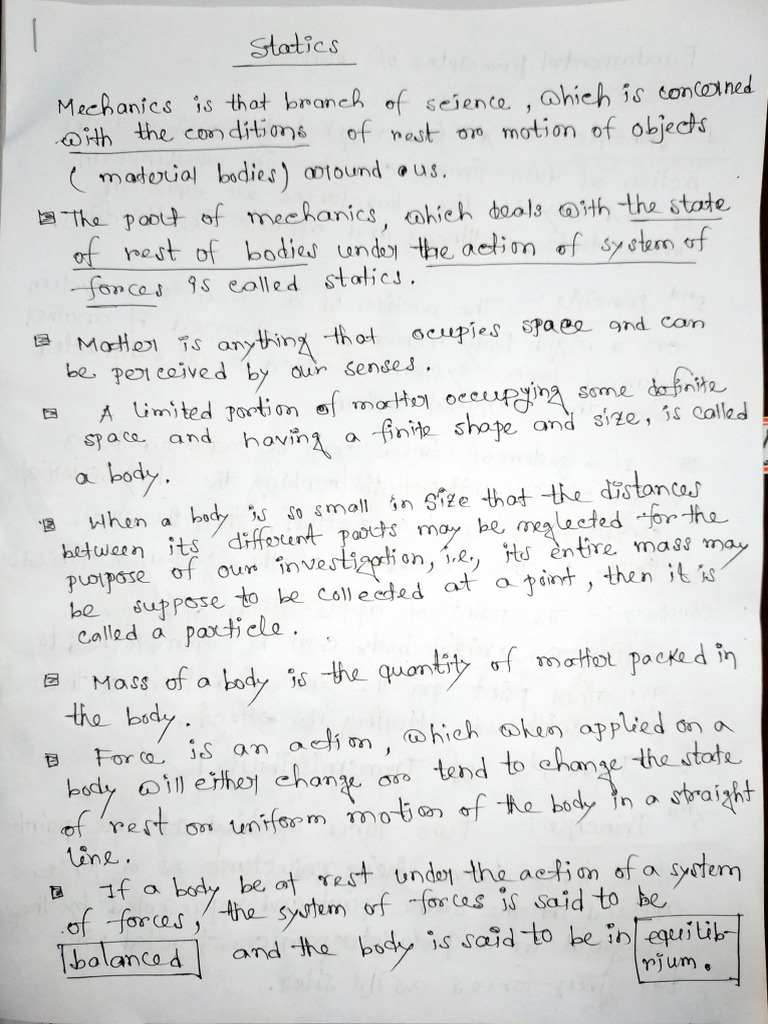 1
Statics
Mechanics is that branch of science, which is concerned
with the conditions of rest or motion of objects
( material bodies) around us.
The part of mechanics, which deals with the state
of rest of bodies under the action of system of
forces is called statics.
Matter is anything that ocupies space and can
be perceived by our senses.
A limited portion of matter occupying some definite
space and having a finite shape and size, is called
a body.
When a body is so small in size that the distances
between its different parts may be neglected for the
purpose of our investigation, i.e., its entire mass may
be suppose to be collected at a point, then it is
called a particle.
Mass of a body is the quantity of matter packed in
the body.
Force is an action, which when applied on a
body will either change or tend to change the state
of rest or uniform motion of the body in a straight
line.
If a body be at rest under the action of a system
of forces, the system of forces is said to be
balanced and the body is said to be in equilib-
rium.